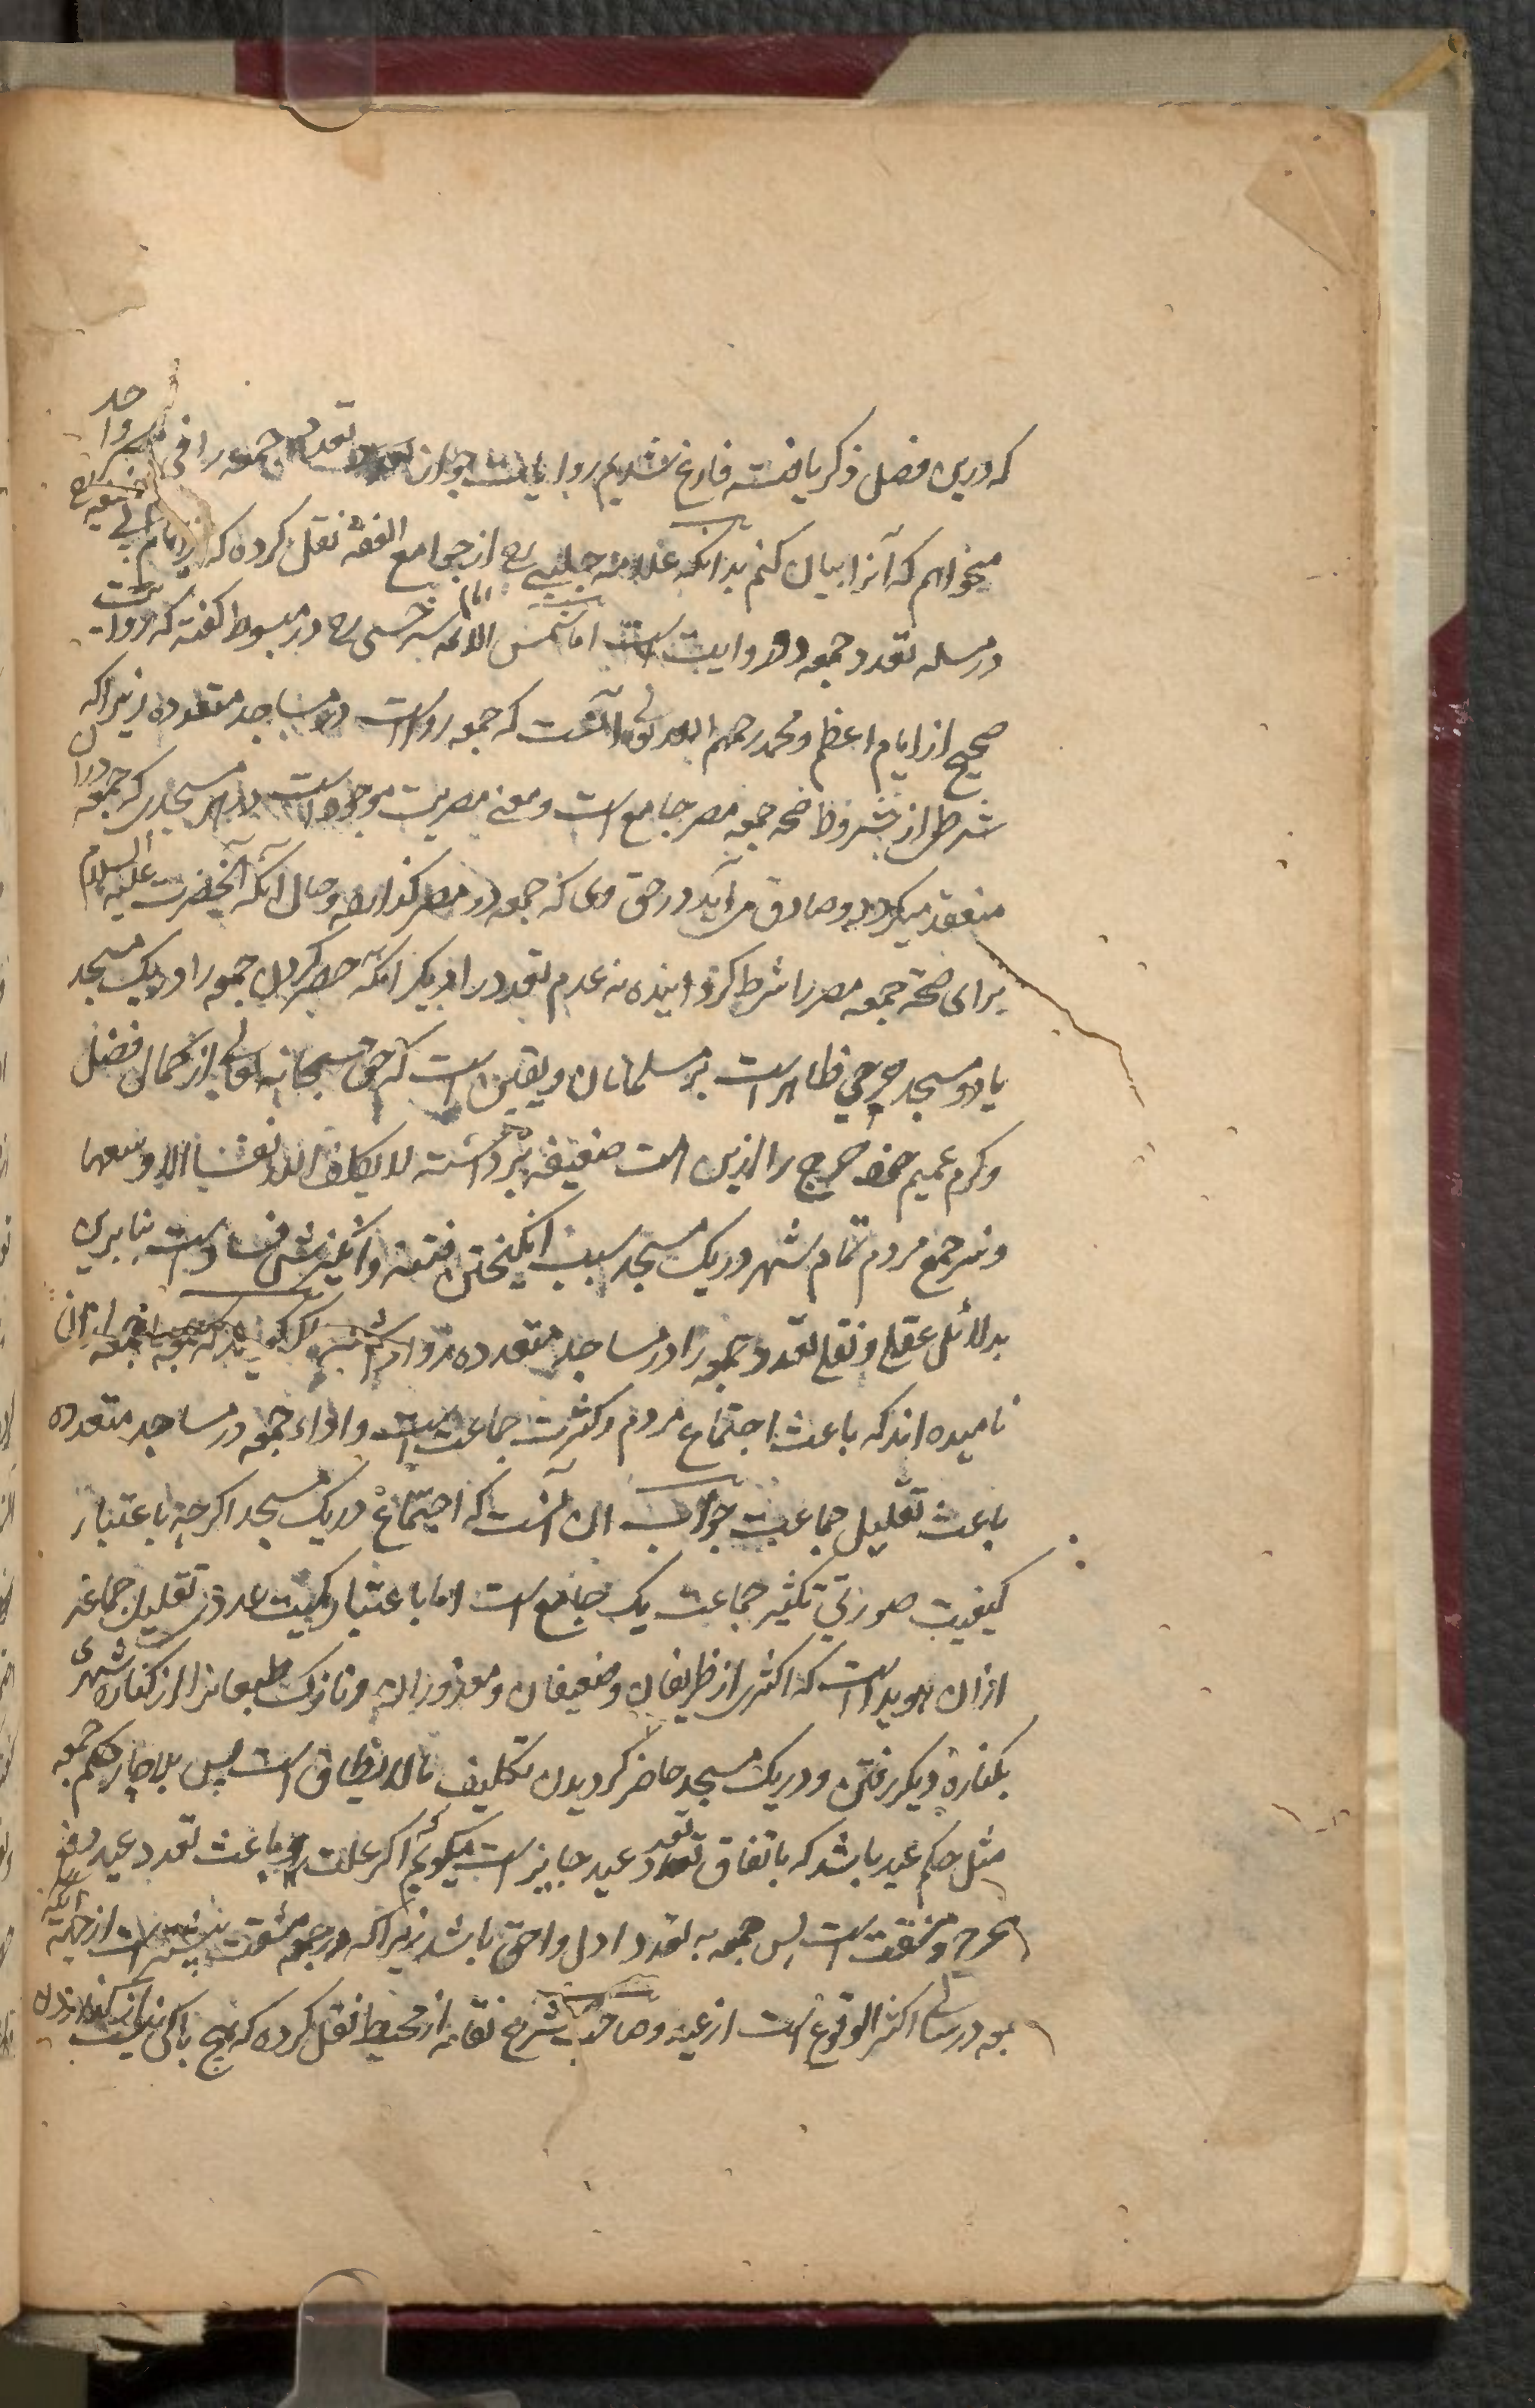 که درین فصل ذکر یافته فارغ شدیم روایات جواز تعدد جمعه را فی مصر واحد
میخواهم که آنرا بیان کنم بدانکه علامه جلبی رح از جوامع الفقه نقل کرده که از امام ابی حنیفه رح
در مسله تعدد جمعه دو روایت است اما شمس الائمه امام سرخسی رح در مبسوط گفته که روایت
صحیح از امام اعظم و محمد رحمهم الله تعالی آنست که جمعه رواست در مساجد متعدده زیرا که
شرط از شروط صحه جمعه مصر جامع است و معنی مصریت موجود است در هر مسجدی که جمعه در آن
منعقد میگردد و صادق می آید در حق وی که جمعه در مصر گذارده و حال آنکه آنحضرت علیه السلام
برای صحة جمعه مصر را شرط گردانیده نه عدم تعدد را دیگر انکه حصر کردن جمعه را در یک مسجد
یا دو مسجد حرجی ظاهر است بر مسلمانان و یقین است که حق سبحانه تعالی از کمال فضل
و کرم عمیم خود حرج را ازین امت ضعیفه برداشته لا یکلف الله نفسا الا وسعها
و نیز جمع مردم تمام شهر در یک مسجد سبب انگیختن فتنه و انگیزش فساد است بنابرین
بدلائل عقلی و نقلی تعدد جمعه را در مساجد متعدده روا داشته اگر گوید که جمعه را جمعه ازان
نامیده اند که باعث اجتماع مردم و کثرت جماعت است و اداء جمعه در مساجد متعدده
باعث تقلیل جماعت جواب ان آنست که اجتماع در یک مسجد اگرچه باعتبار
کیفیت صورتی تکثیر جماعت یک جامع است اما باعتبار کمیت عددی تقلیل جماعه
ازان هویداست که اکثری از ظریفان و ضعیفان و معذوران و نازک طبعانرا از کناره شهری
بکناره دیگر رفتن و در یک مسجد حاضر گردیدن تکلیف ما لا یطاق است پس بلاچار حکم جمعه
مثل حکم عید باشد که باتفاق تعدد عید جایز است میگویم که اگر علت و باعث تعدد عید دفع
حرج و مشقت است پس جمعه به تعدد اولی و احق باشد زیرا که در جمعه مشقت بیشتر است از جهة انکه
جمعه در سالی اکثر الوقوع است از عید و صاحب شرح نقایه از محیط نقل کرده که هیچ باکی نیست از گذاردن